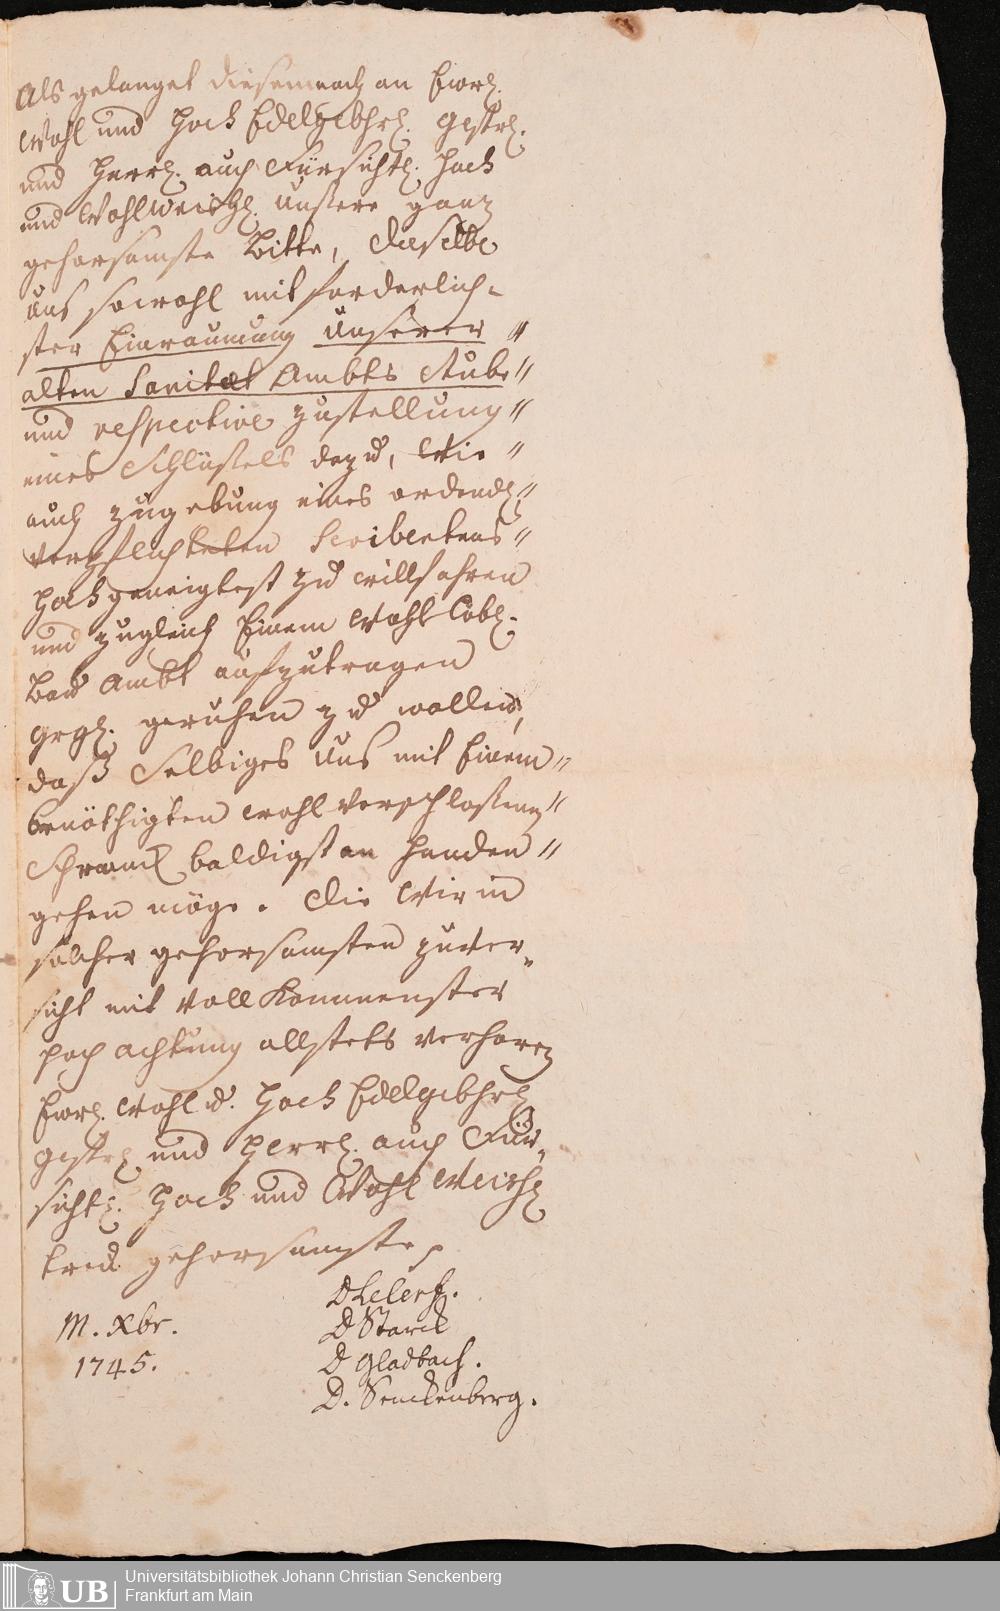 Als gelanget diesemnach an Ewrl.
Wohl und Hoch Edelgebhrl. Gestrl.
und Herrl. auch Fürsichtl. Hoch
und Wohlweißhl. Unsere gantz
gehorsamste Bitte, dieselbe
Uns sowohl mit forderlich-
ster Einraumung Unserer //
alten Sanitæt Ambts Stube //
und respective zustellung //
eines Schlüßels dazu, wie //
auch zugebung eines ordendl. //
verpflichteten Scribentens //
Hochgeneigtest zu willfahren
und zugleich Einem Wohl Löbl.
Bau Ambt aufzutragen
grgl. geruhen zu wollen,
daß Selbiges Uns mit Einem //
benöthigten wohl verschloßenen //
Schranck baldigst an Handen //
gehen möge. Die Wir in
solcher gehorsamsten zuver-
sicht mit Vollkommenster
Hochachtung allstets verharen
Ewrl. Wohl u. Hoch Edelgebhrl.
Gestrl. und Herrl. auch Für-
sichtl. Hoch und Wohl Weißhl.
treu gehorsamste
M. Xbr.
1745.
D Starck
D Gladbach.
D. Senckenberg.
UB
Universitätsbibliothek Johann Christian Senckenberg
Frankfurt am Main